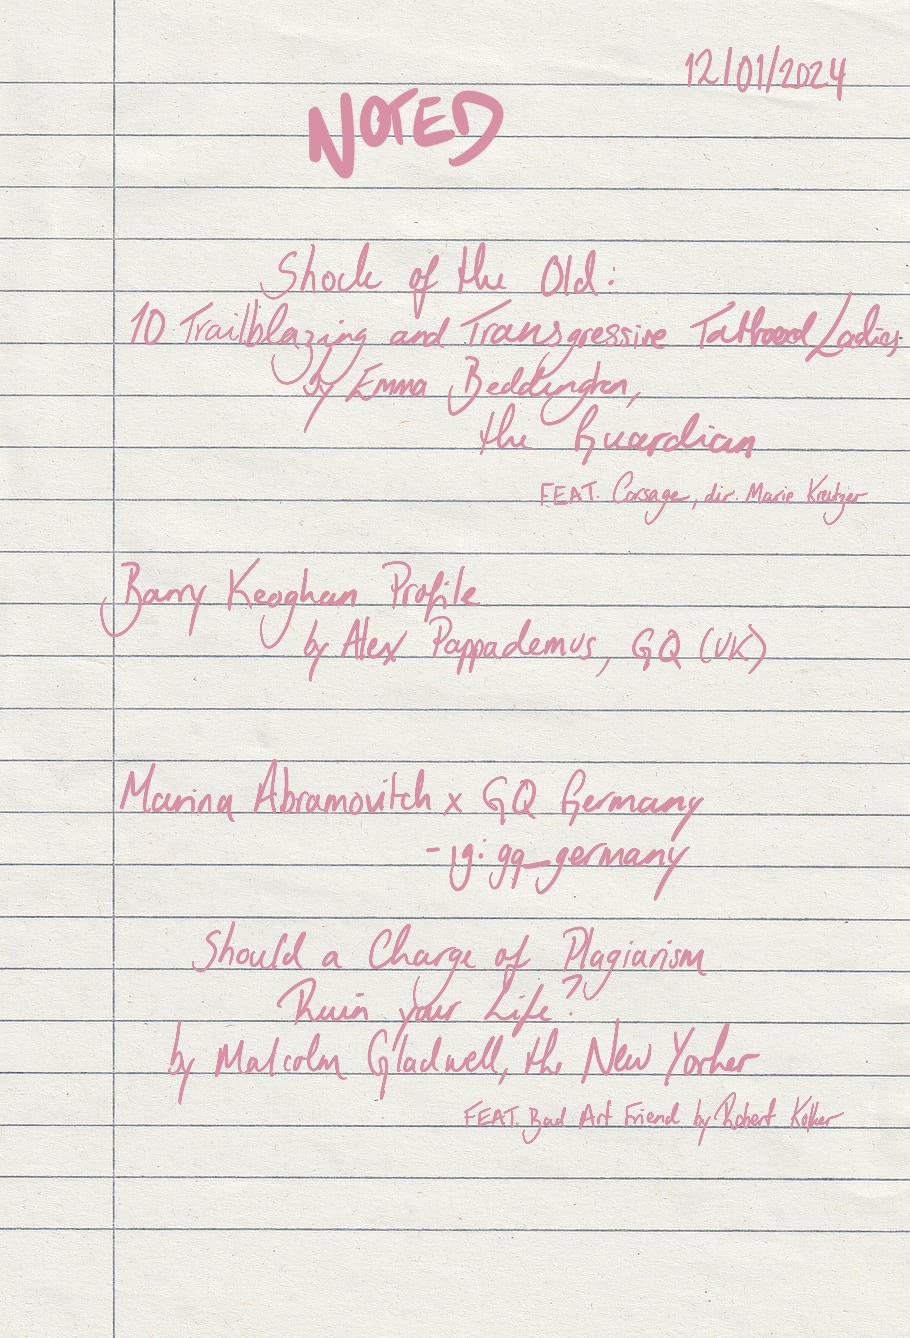 12/01/2024
NOTED
Shock of the Old:
10 Trailblazing and Transgressive Tattooed Ladies
by Emma Beddington,
the Guardian
FEAT. Corsage, dir. Marie Kreutzer
Barry Keoghan Profile
by Alex Pappademus, GQ (UK)
Marina Abramovitch x GQ Germany
- ig: gq_germany
Should a Charge of Plagiarism
Ruin your Life?
by Malcolm Gladwell, the New Yorker
FEAT. Bad Art Friend by Robert Kolker